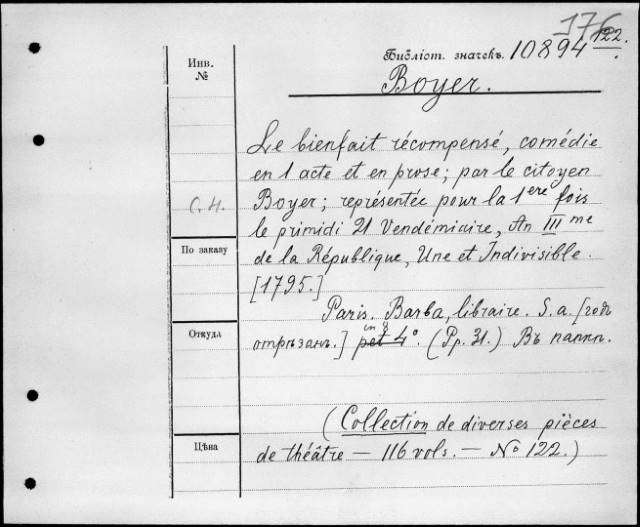 176
Инв.
№
Библіот. значекъ. 10894 122.
Boyer.
Le bienfait récompensé, comédie
en 1 acte et en prose; par le citoyen
Boyer; représentée pour la 1ère fois
С.Н.
le primidi 21 Vendémiaire, An III me
По заказу
de la République, Une et Indivisible.
[1795.]
Paris. Barba, libraire. S. a. [годъ
Откуда
отрѣзанъ.] pet 4°. in 8 (Pp. 31.) Въ папкѣ.
(Collection de diverses pièces
Цѣна
de théâtre — 116 vols. — No 122.)